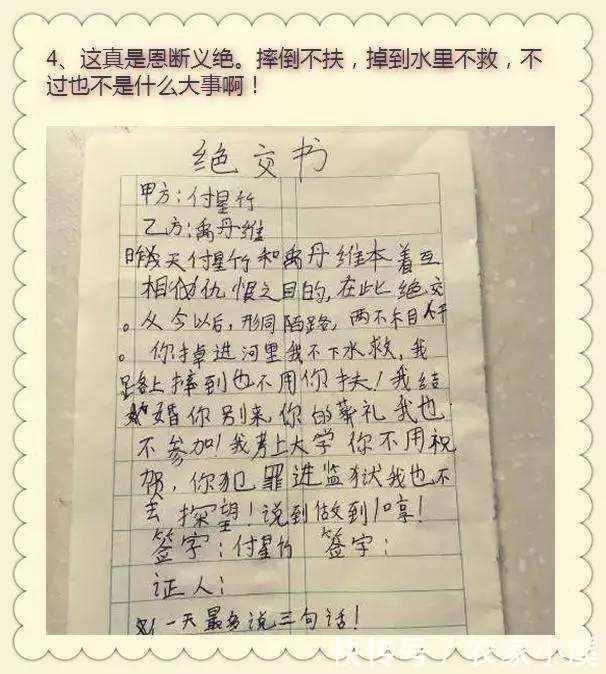 4、这真是恩断义绝。摔倒不扶，掉到水里不救，不
过也不是什么大事啊！
绝交书
甲方：付星竹
乙方：禹丹维
昨天付星竹和禹丹维本着互
相仇恨之目的，在此绝交
。从今以后，形同陌路，两不相干
。你掉进河里我不下水救，我
路上摔到也不用你扶！我结
婚你别来你的葬礼我也
不参加！我考上大学你不用祝
贺，你犯罪进监狱我也不
去探望！说到做到！哼！
签字：付星竹 签字：
证人：
一天最多说三句话！
快传号 / 农家小溪